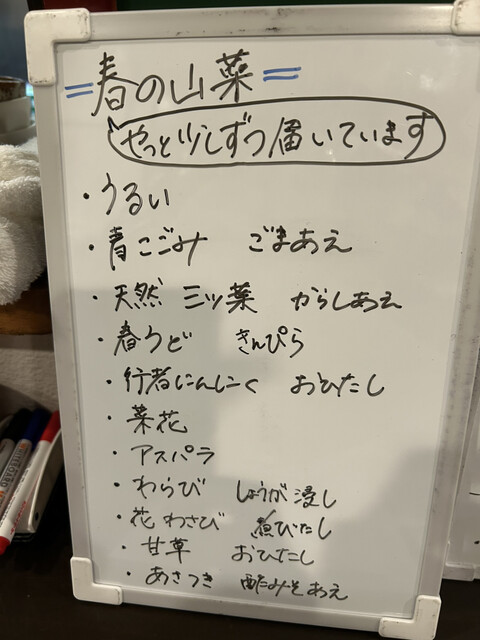 =春の山菜=
やっと少しずつ届いています
・うるい
・青こごみ ごまあえ
・天然 三ッ葉 からしあえ
・春うど きんぴら
・行者にんにく おひたし
・菜花
・アスパラ
・わらび しょうが浸し
・花わさび 煮びたし
・甘草 おひたし
・あさつき 酢みそあえ